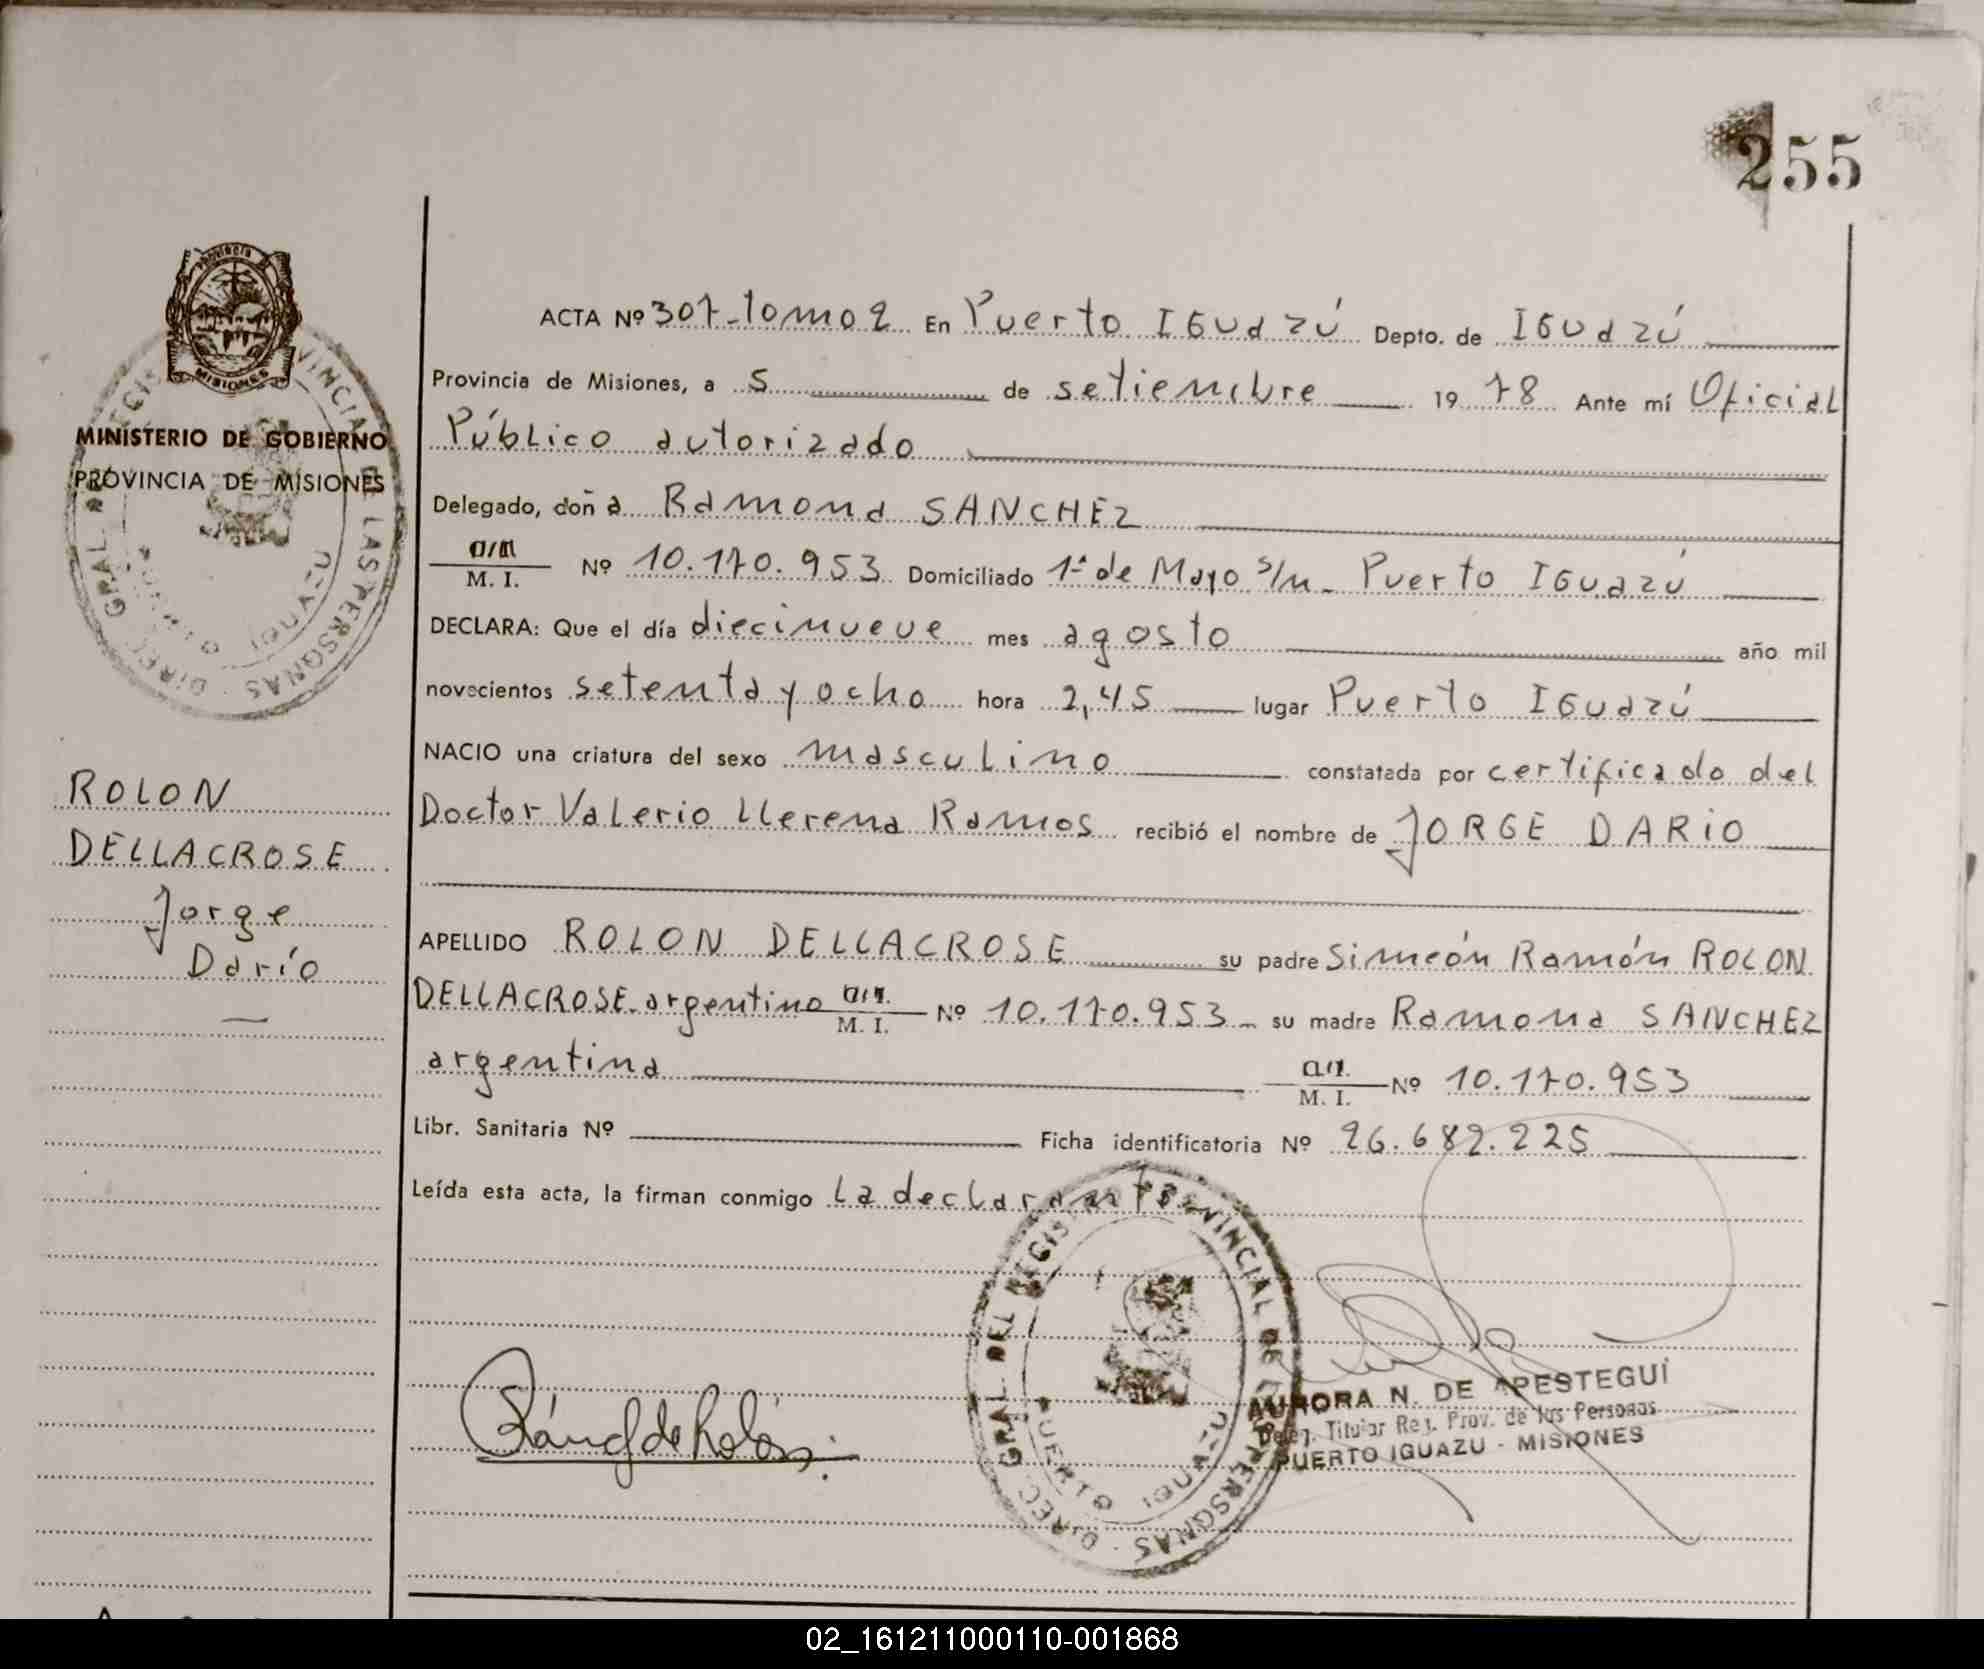 255
Provincia
MISIONES
MINISTERIO DE GOBIERNO
PROVINCIA DE MISIONES
DIREC. GRAL. DEL REGIS PROVINCIAL DE LAS PERSONAS
PUERTO IGUAZU
ROLON
DELLACROSE
Jorge
Darío
ACTA Nº 307-Tomo 2 En Puerto IGuazú Depto. de IGuazú
Provincia de Misiones, a 5 de setiembre 1978 Ante mí Oficial
Público autorizado
Delegado, doña Ramona SANCHEZ
M. I. Nº 10.170.953 Domiciliado 1º de Mayo s/n - Puerto IGuazú
DECLARA: Que el día diecinueve mes agosto año mil
novecientos setenta y ocho hora 2,45 lugar Puerto IGuazú
NACIO una criatura del sexo masculino constatada por certificado del
Doctor Valerio Llerena Ramos recibió el nombre de JORGE DARIO
APELLIDO ROLON DELLACROSE su padre Simeón Ramón ROLON
DELLACROSE-argentino M. I. Nº 10.170.953- su madre Ramona SANCHEZ
argentina M. I. Nº 10.170.953
Libr. Sanitaria Nº Ficha identificatoria Nº 26.682.225
Leída esta acta, la firman conmigo La declarante
DIREC. GRAL. DEL REGIS PROVINCIAL DE LAS PERSONAS
PUERTO IGUAZU
AURORA N. DE APESTEGUÍ
Deleg. Titular Reg. Prov. de las Personas
PUERTO IGUAZU - MISIONES
02_161211000110-001868